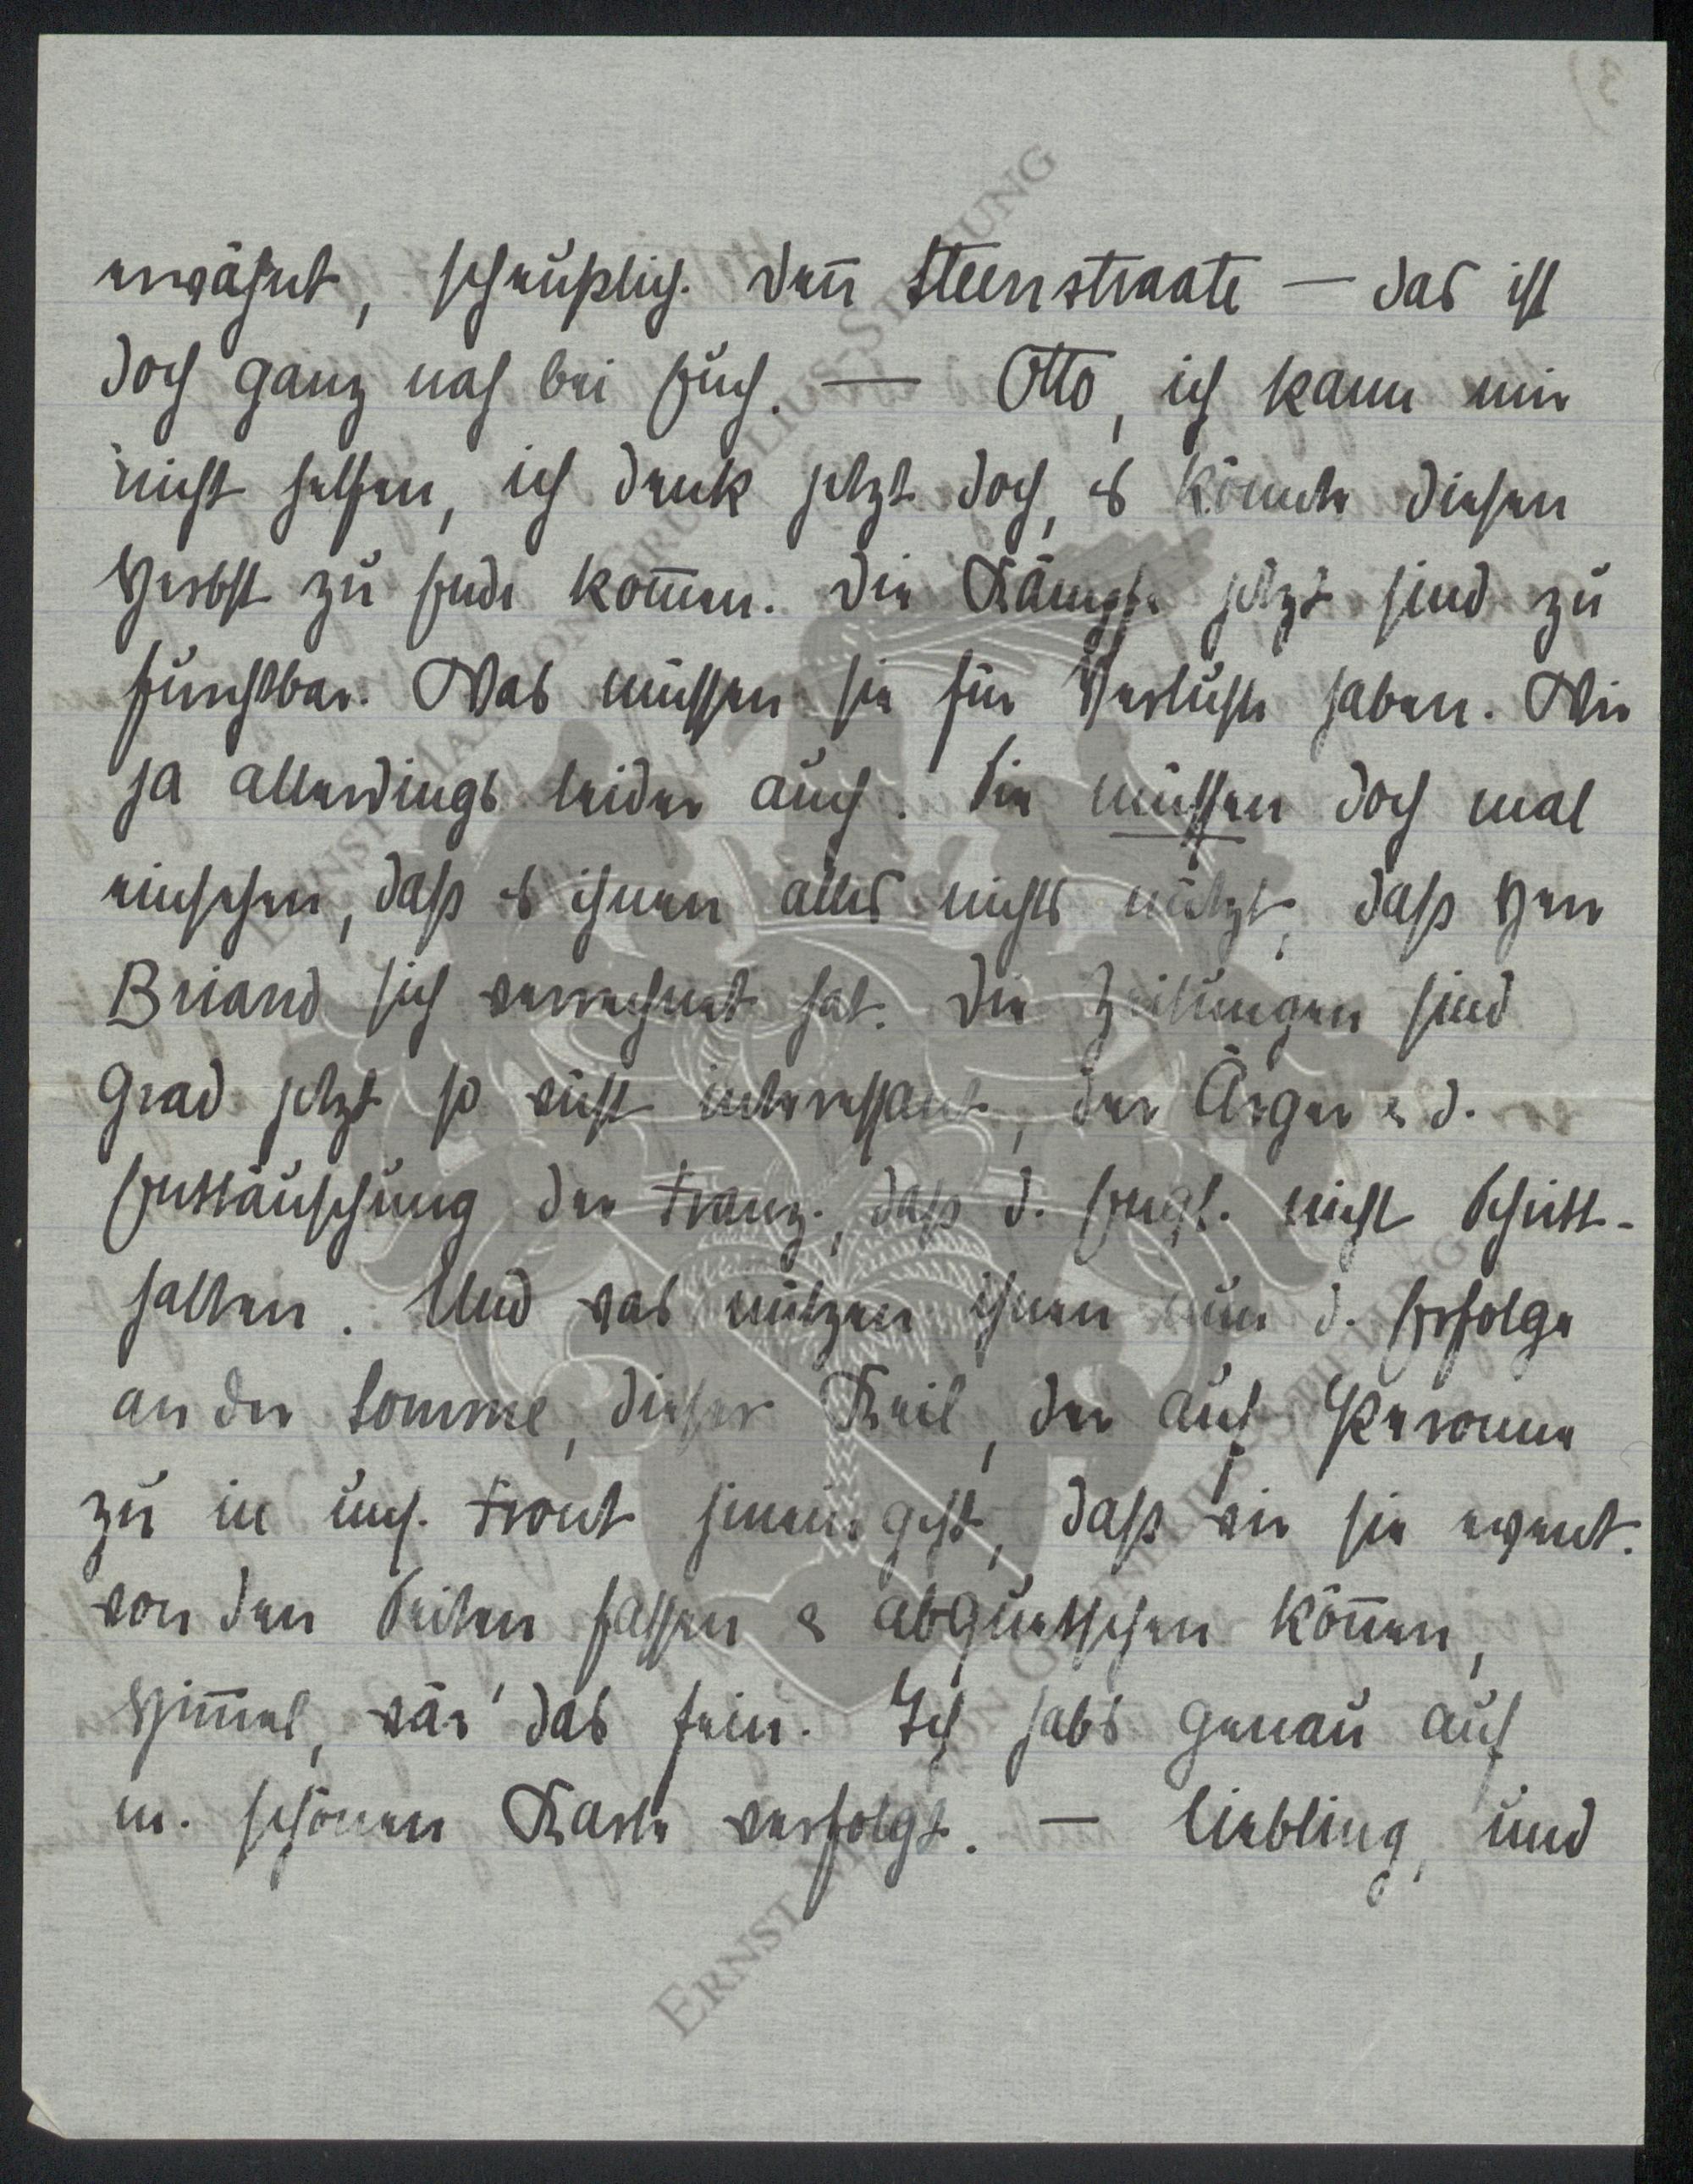 erwähnt, scheußlich. Den̄ Steenstraate — das ist
doch ganz nah bei Euch. — Otto, ich kann mir
nicht helfen, ich denk jetzt doch, es könnte diesen
Herbst zu Ende kom̄en. Die Kämpfe jetzt sind zu
furchtbar. Was müssen sie für Verluste haben. Wir
ja allerdings leider auch. Sie müssen doch mal
einsehen, daß es ihnen alles nichts nützt, daß Herr
Briand sich verrechnet hat. Die Zeitungen sind
grad jetzt so riesig interessant, der Ärger & d.
Enttäuschung der Franz., daß d. Engl. nicht Schritt-
halten. Und was nützen ihnen nun d. Erfolge
an der Somme, dieser Keil, der auf Peronne
zu in uns. Front hineingeht, daß wir sie event.
von den Seiten fassen & abquetschen kön̄en,
Him̄el, wär' das fein. Ich habs genau auf
m. schönen Karte verfolgt. — Liebling, und
3)
ERNST MAX VON GRUNELIUS-STIFTUNG
ERNST MAX VON GRUNELIUS-STIFTUNG